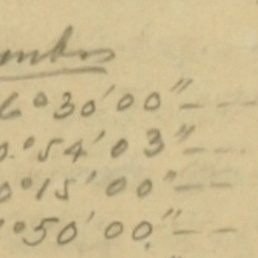 6°30'00"---
0.°54'03"---
0°15'00"--
°50'00."--